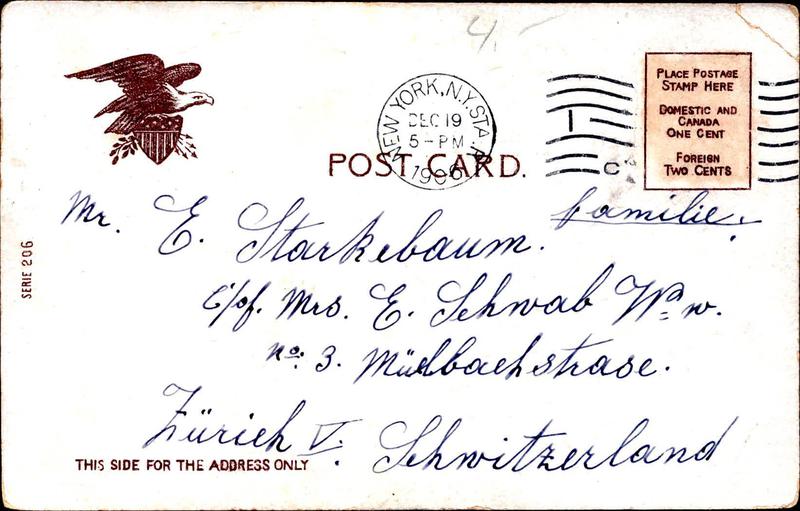 4.-
NEW YORK, N.Y. STA.
DEC 19
5-PM
1906
C
PLACE POSTAGE
STAMP HERE
DOMESTIC AND
CANADA
ONE CENT
FOREIGN
TWO CENTS
POST CARD.
Mr. E. Starkebaum. familie.
c/of. Mrs. E. Schwab Ww.
no: 3. Mülbachstrase.
Zürich V. Schwitzerland
SERIE 206
THIS SIDE FOR THE ADDRESS ONLY